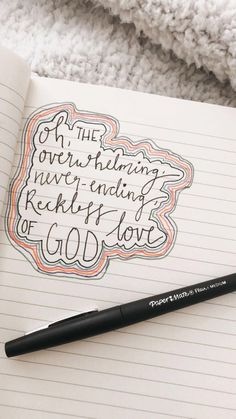 oh, THE
overwhelming,
never-ending,
Reckless love
OF GOD
Paper Mate Flair MEDIUM